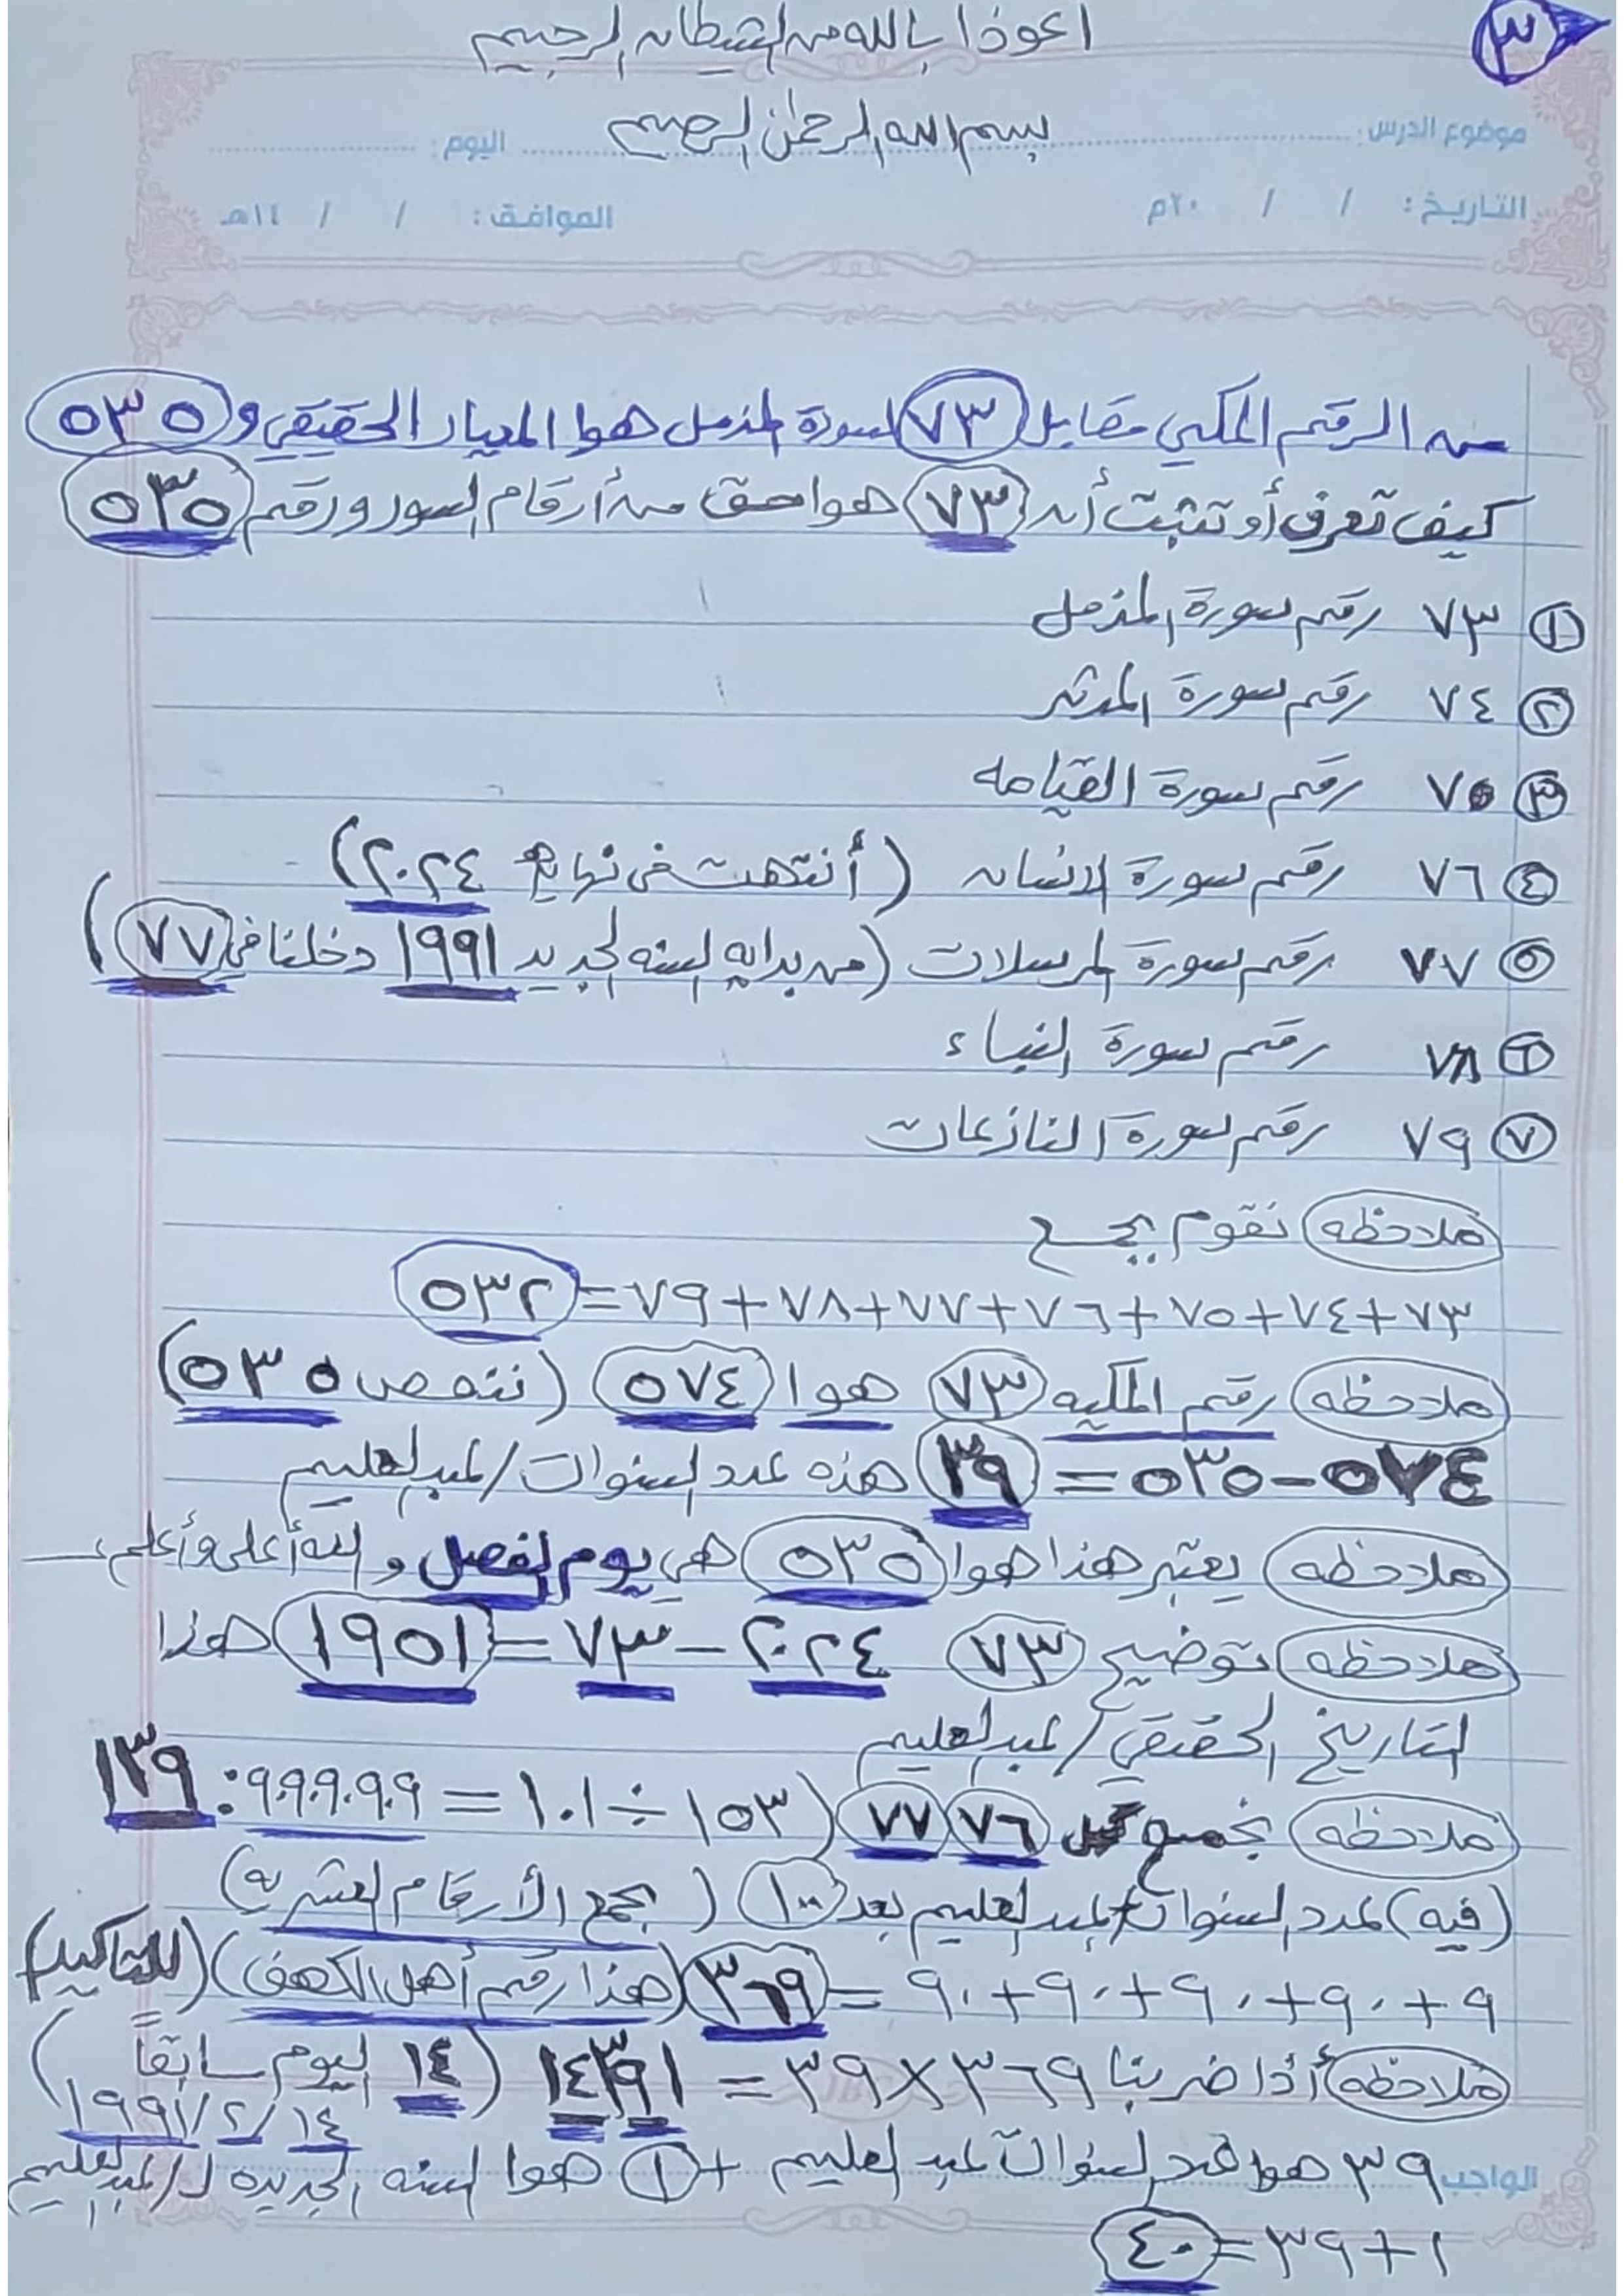 ٣
اعوذا بالله من الشيطان الرجيم
بسم الله الرحمن الرحيم
موضوع الدرس: اليوم:
التاريخ: / / ٢٠م الموافق: / / ١٤هـ
من الرقم المكي مقابل ٧٣ لسورة المزمل هوا المعيار الحقيقي و ٥٣٥
كيف تعرف أو تثبت أن ٧٣ هوا حق من أرقام السور ورقم ٥٣٥
١ ٧٣ رقم سورة المزمل
٢ ٧٤ رقم سورة المدثر
٣ ٧٥ رقم سورة القيامه
٤ ٧٦ رقم سورة الانسان (أنتهت في نهايه ٢٠٢٤)
٥ ٧٧ رقم سورة المرسلات (من بدايه السنه الجديد ١٩٩١ دخلنا في ٧٧)
٦ ٧٨ رقم سورة النباء
٧ ٧٩ رقم سورة النازعات
ملاحظه نقوم بجمع
٧٣+٧٤+٧٥+٧٦+٧٧+٧٨+٧٩=٥٣٢
ملاحظه رقم المكيه ٧٣ هوا ٥٧٤ (ننقص ٥٣٥)
٥٧٤-٥٣٥=٣٩ هذه عدد السنوات/عبدالعليم
ملاحظه يعتبر هذا هوا ٥٣٥ هي يوم الفصل و الله أعلى وأعلم
ملاحظه توضيح ٧٣ ٢٠٢٤-٧٣=١٩٥١ هذا
التاريخ الحقيقي/عبدالعليم
ملاحظه بجمع ٧٦ ٧٧ (١٥٣÷١٠١=٩٠٩٠٩٠٩٠٩:١٣٩
(فيه) عدد السنوات/عبدالعليم بعد ١٠٠ (بجمع الأرقام العشريه)
٩+٩٠+٩٠+٩٠+٩٠=٣٦٩ (هذا رقم أهل الكهف) (للتأكيد)
ملاحظه أذا ضربنا ٣٦٩×٣٩=١٤٣٩١ (١٤ اليوم سابقاً)
١٤/٢/١٩٩١
الواجب ٣٩ هوا عدد السنوات عبدالعليم +١ هوا السنه الجديده ل/عبدالعليم
١+٣٩=٤٠